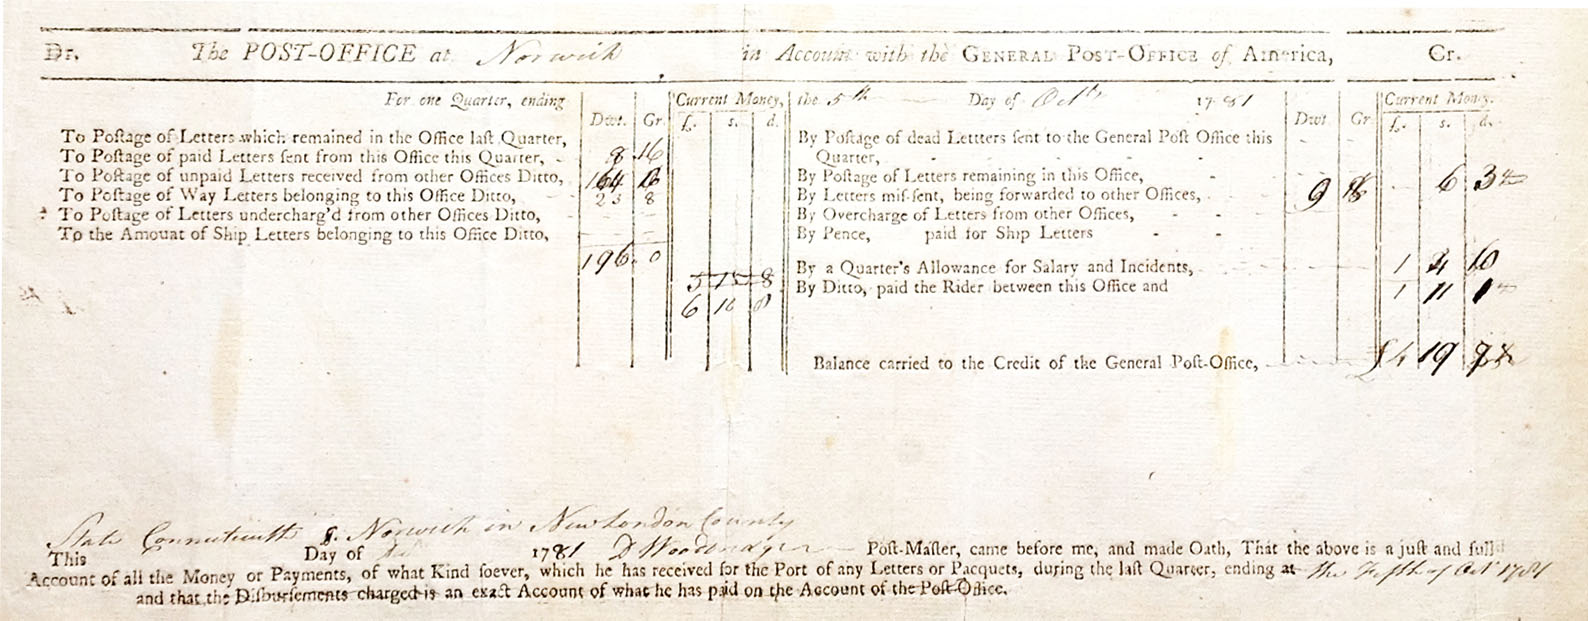 Dr. The POST-OFFICE at Norwich in Account with the GENERAL POST-OFFICE of America, Cr.
For one Quarter, ending the 5th Day of Octr 1781
Dwt. Gr. Current Money, £. s. d. Dwt Gr. Current Money. £. s. d.
To Poſtage of Letters which remained in the Office laſt Quarter,
To Poſtage of paid Letters ſent from this Office this Quarter, 8 16
To Poſtage of unpaid Letters received from other Offices Ditto, 164
To Poſtage of Way Letters belonging to this Office Ditto, 23 8
To Poſtage of Letters undercharg'd from other Offices Ditto,
To the Amouat of Ship Letters belonging to this Office Ditto,
196 0
5 15 8
6 16 8
By Poſtage of dead Letters ſent to the General Poſt Office this
Quarter,
By Poſtage of Letters remaining in this Office,
By Letters miſ-ſent, being forwarded to other Offices, 9 6 3
By Overcharge of Letters from other Offices,
By Pence, paid for Ship Letters
By a Quarter's Allowance for Salary and Incidents, 1 4 10
By Ditto, paid the Rider between this Office and 1 11 1
Balance carried to the Credit of the General Poſt-Office, £4 19
State Connecticutt Norwich in New London County
This Day of 1781 D Woodbridge Poſt-Maſter, came before me, and made Oath, That the above is a juſt and full
Account of all the Money or Payments, of what Kind ſoever, which he has received for the Port of any Letters or Pacquets, during the laſt Quarter, ending at the Fifth of Octr 1781
and that the Diſburſements charged is an exact Account of what he has paid on the Account of the Poſt-Office.